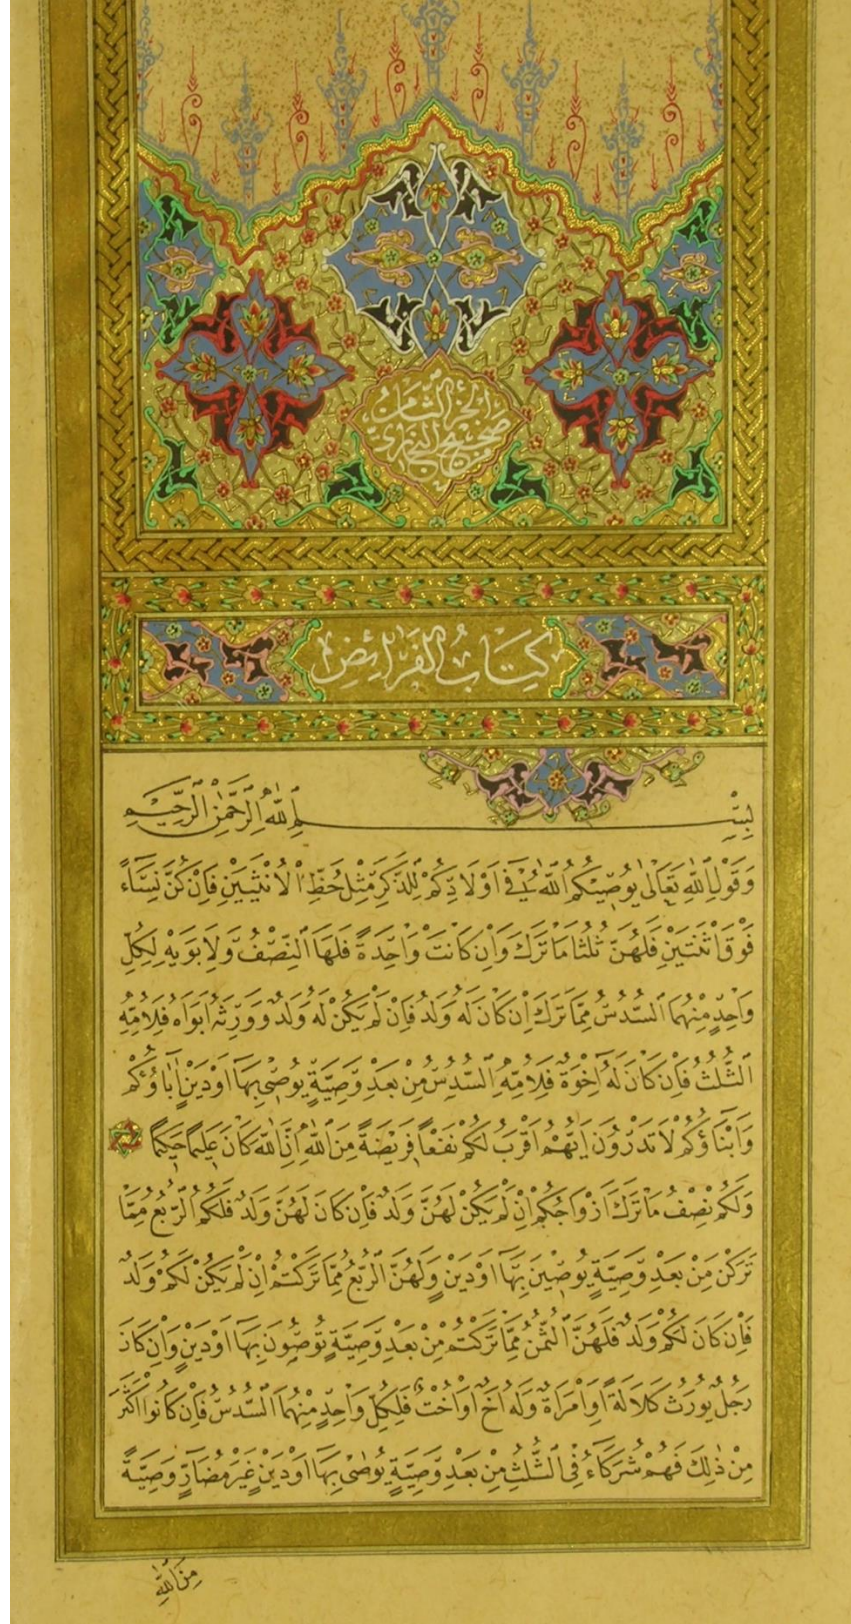 الجزء الثامن
صحيح البخاري
كِتَابُ الْفَرَائِضِ
بِسْمِ اللّٰهِ الرَّحْمٰنِ الرَّحِيمِ
وَقَوْلِ اللّٰهِ تَعَالٰى يُوصِيكُمُ اللّٰهُ فِى اَوْلَادِكُمْ لِلذَّكَرِ مِثْلُ حَظِّ الْاُنْثَيَيْنِ فَاِنْ كُنَّ نِسَٓاءً
فَوْقَ اثْنَتَيْنِ فَلَهُنَّ ثُلُثَا مَا تَرَكَ وَاِنْ كَانَتْ وَاحِدَةً فَلَهَا النِّصْفُ وَلِاَبَوَيْهِ لِكُلِّ
وَاحِدٍ مِنْهُمَا السُّدُسُ مِمَّا تَرَكَ اِنْ كَانَ لَهُ وَلَدٌ فَاِنْ لَمْ يَكُنْ لَهُ وَلَدٌ وَوَرِثَهُ اَبَوَاهُ فَلِاُمِّهِ
الثُّلُثُ فَاِنْ كَانَ لَهُ اِخْوَةٌ فَلِاُمِّهِ السُّدُسُ مِنْ بَعْدِ وَصِيَّةٍ يُوصٖى بِهَٓا اَوْ دَيْنٍ اٰبَاؤُكُمْ
وَاَبْنَاؤُكُمْ لَا تَدْرُونَ اَيُّهُمْ اَقْرَبُ لَكُمْ نَفْعًا فَرٖيضَةً مِنَ اللّٰهِ اِنَّ اللّٰهَ كَانَ عَلٖيمًا حَكٖيمًا
وَلَكُمْ نِصْفُ مَا تَرَكَ اَزْوَاجُكُمْ اِنْ لَمْ يَكُنْ لَهُنَّ وَلَدٌ فَاِنْ كَانَ لَهُنَّ وَلَدٌ فَلَكُمُ الرُّبُعُ مِمَّا
تَرَكْنَ مِنْ بَعْدِ وَصِيَّةٍ يُوصٖينَ بِهَٓا اَوْ دَيْنٍ وَلَهُنَّ الرُّبُعُ مِمَّا تَرَكْتُمْ اِنْ لَمْ يَكُنْ لَكُمْ وَلَدٌ
فَاِنْ كَانَ لَكُمْ وَلَدٌ فَلَهُنَّ الثُّمُنُ مِمَّا تَرَكْتُمْ مِنْ بَعْدِ وَصِيَّةٍ تُوصُونَ بِهَٓا اَوْ دَيْنٍ وَاِنْ كَانَ
رَجُلٌ يُورَثُ كَلَالَةً اَوِ امْرَاَةٌ وَلَهُ اَخٌ اَوْ اُخْتٌ فَلِكُلِّ وَاحِدٍ مِنْهُمَا السُّدُسُ فَاِنْ كَانُوا اَكْثَرَ
مِنْ ذٰلِكَ فَهُمْ شُرَكَٓاءُ فِى الثُّلُثِ مِنْ بَعْدِ وَصِيَّةٍ يُوصٰى بِهَٓا اَوْ دَيْنٍ غَيْرَ مُضَٓارٍّ وَصِيَّةً
مِنَ اللّٰهِ